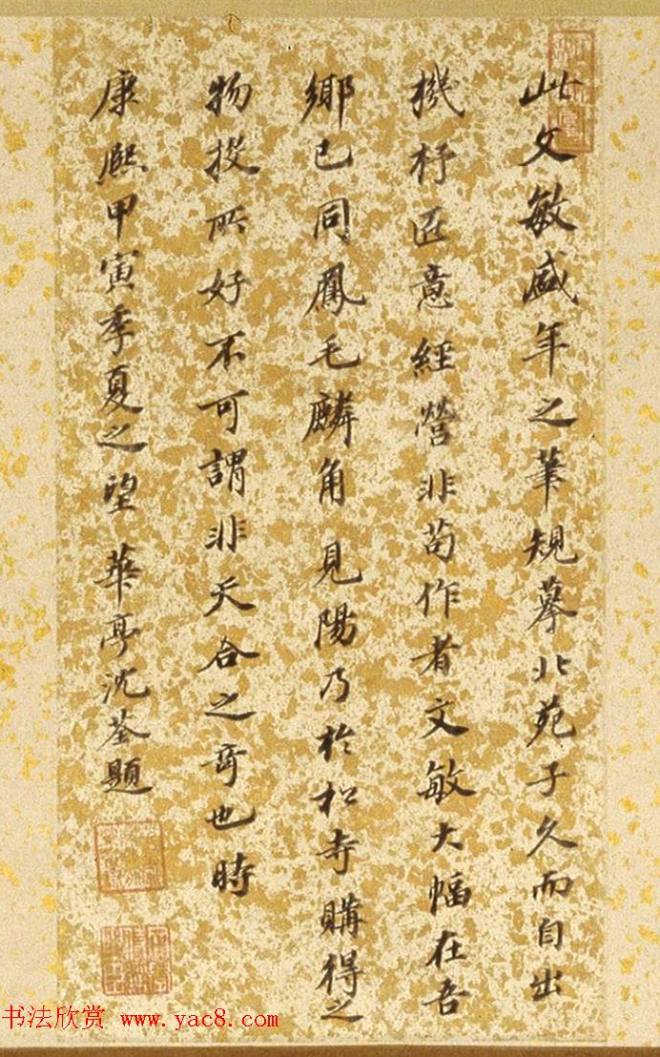 此文敏盛年之筆規摹北苑子久而自出
機杼匠意經營非苟作者文敏大幅在吾
鄉已同鳳毛麟角見陽乃於松寺購得之
物投所好不可謂非天合之奇也時
康熙甲寅季夏之望華亭沈荃題
书法欣赏 www.yac8.com